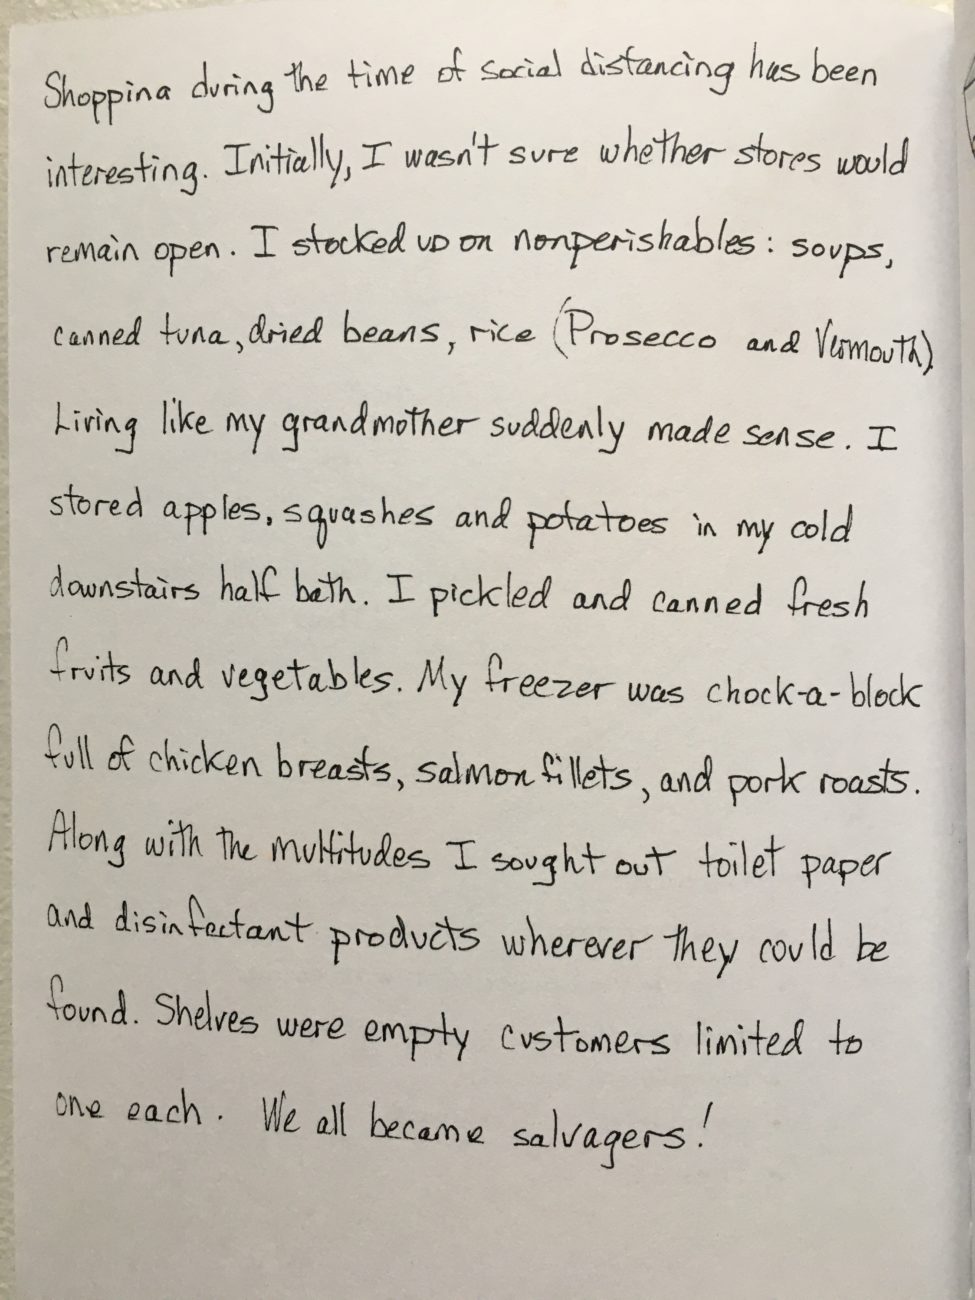 Shopping during the time of social distancing has been
interesting. Initially, I wasn't sure whether stores would
remain open. I stocked up on nonperishables: soups,
canned tuna, dried beans, rice (Prosecco and Vermouth).
Living like my grandmother suddenly made sense. I
stored apples, squashes and potatoes in my cold
downstairs half bath. I pickled and canned fresh
fruits and vegetables. My freezer was chock-a-block
full of chicken breasts, salmon fillets, and pork roasts.
Along with the multitudes I sought out toilet paper
and disinfectant products wherever they could be
found. Shelves were empty customers limited to
one each. We all became salvagers!